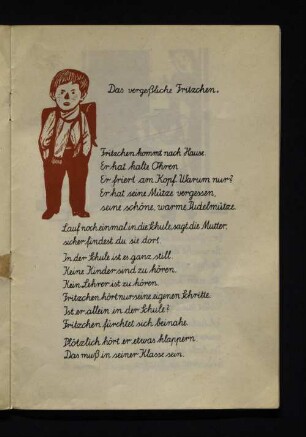 Das vergeßliche Fritzchen.
Fritzchen kommt nach Hause.
Er hat kalte Ohren.
Er friert am Kopf. Warum nur?
Er hat seine Mütze vergessen,
seine schöne, warme Pudelmütze.
Lauf noch einmal in die Schule, sagt die Mutter,
sicher findest du sie dort.
In der Schule ist es ganz still.
Keine Kinder sind zu hören.
Kein Lehrer ist zu hören.
Fritzchen hört nur seine eigenen Schritte.
Ist er allein in der Schule?
Fritzchen fürchtet sich beinahe.
Plötzlich hört er etwas klappern.
Das muß in seiner Klasse sein.